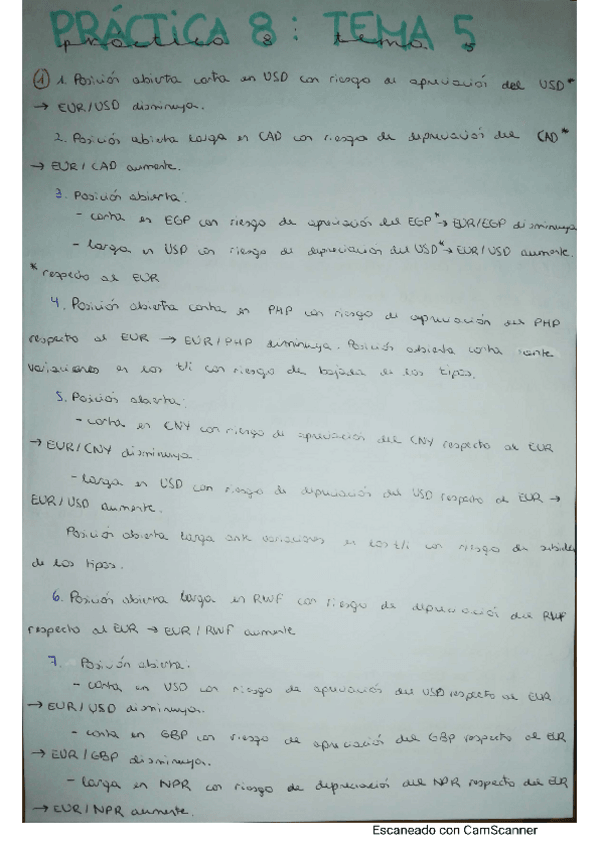 PRÁCTICA 8: TEMA 5
práctica 8: tema 5
① 1. Posición abierta corta en USD con riesgo de apreciación del USD*
→ EUR/USD disminuya.
2. Posición abierta larga en CAD con riesgo de depreciación del CAD*
→ EUR/CAD aumente.
3. Posición abierta:
- corta en EGP con riesgo de apreciación del EGP* → EUR/EGP disminuya
- larga en USD con riesgo de depreciación del USD* → EUR/USD aumente.
* respecto al EUR
4. Posición abierta corta en PHP con riesgo de apreciación del PHP
respecto al EUR → EUR/PHP disminuya. Posición abierta corta ante
variaciones en los t/i con riesgo de bajada de los tipos.
5. Posición abierta:
- corta en CNY con riesgo de apreciación del CNY respecto al EUR
→ EUR/CNY disminuya
- larga en USD con riesgo de depreciación del USD respecto al EUR →
EUR/USD aumente.
Posición abierta larga ante variaciones en los t/i con riesgo de subida
de los tipos.
6. Posición abierta larga en RWF con riesgo de depreciación del RWF
respecto al EUR → EUR/RWF aumente
7. Posición abierta:
- corta en USD con riesgo de apreciación del USD respecto al EUR
→ EUR/USD disminuya.
- corta en GBP con riesgo de apreciación del GBP respecto al EUR
→ EUR/GBP disminuya.
- larga en NPR con riesgo de depreciación del NPR respecto del EUR
→ EUR/NPR aumente.
Escaneado con CamScanner